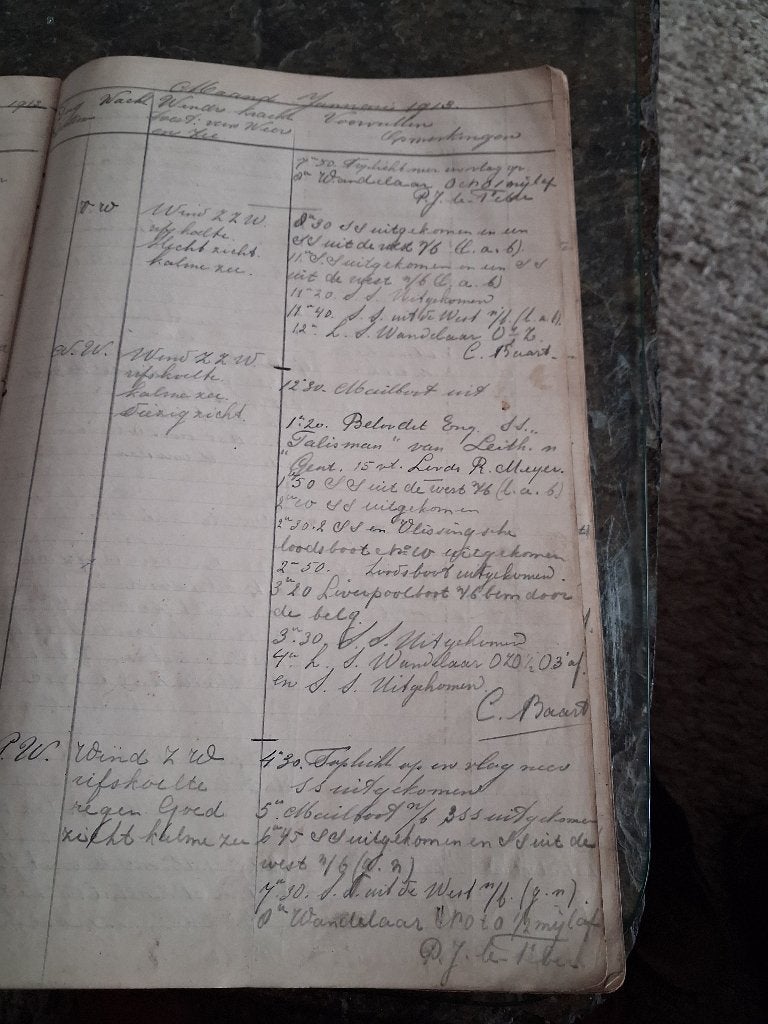 1913
Maand Januari 1913.
Wacht Winds kracht Voorvallen
Toest: van Weer Opmerkingen
en Zee
7u 30. Toplicht neer en vlag op.
8u Wandelaar mijl af
P.J. te
V.W Wind Z Z W
rifskoelte
slecht zicht
kalme zee.
8u30 SS uitgekomen en een
SS uit de west n/b (l.a.b).
11u S.S uitgekomen en een SS
uit de west n/b (l.a.b)
11u 20. S.S. Uitgekomen
11u 40. S.S. uit de West n/b. (l.a.b).
12u L.S. Wandelaar
C. Baart.
N.W. Wind Z Z W
rifskoelte.
kalme zee.
zicht.
12u30. Mailboot uit
1u20. Beloodst Eng. SS.
"Talisman" van Leith. n
Gent. 15 vt. Loods R. Meyer.
1u50 SS uit de west n/b (l.a.b)
2u SS uitgekomen
2u30. 2 SS en Vlissingsche
loodsboot uitgekomen
2u50. Loodsboot uitgekomen.
3u20 Liverpoolboot n/b door
de belg.
3u30. S.S. Uitgekomen
4u. L.S. Wandelaar 3' af.
en S.S. Uitgekomen.
C. Baart
P.W. Wind Z W
rifskoelte
regen Goed
zicht kalme zee
4u30. Toplicht op en vlag neer
SS uitgekomen
5u Mailboot n/b 3 SS uitgekomen
6u45 SS uitgekomen en SS uit de
west n/b (g.n)
7u30. S.S. uit de West n/b. (g.n).
8u Wandelaar 1/2 mijl af
P.J. te